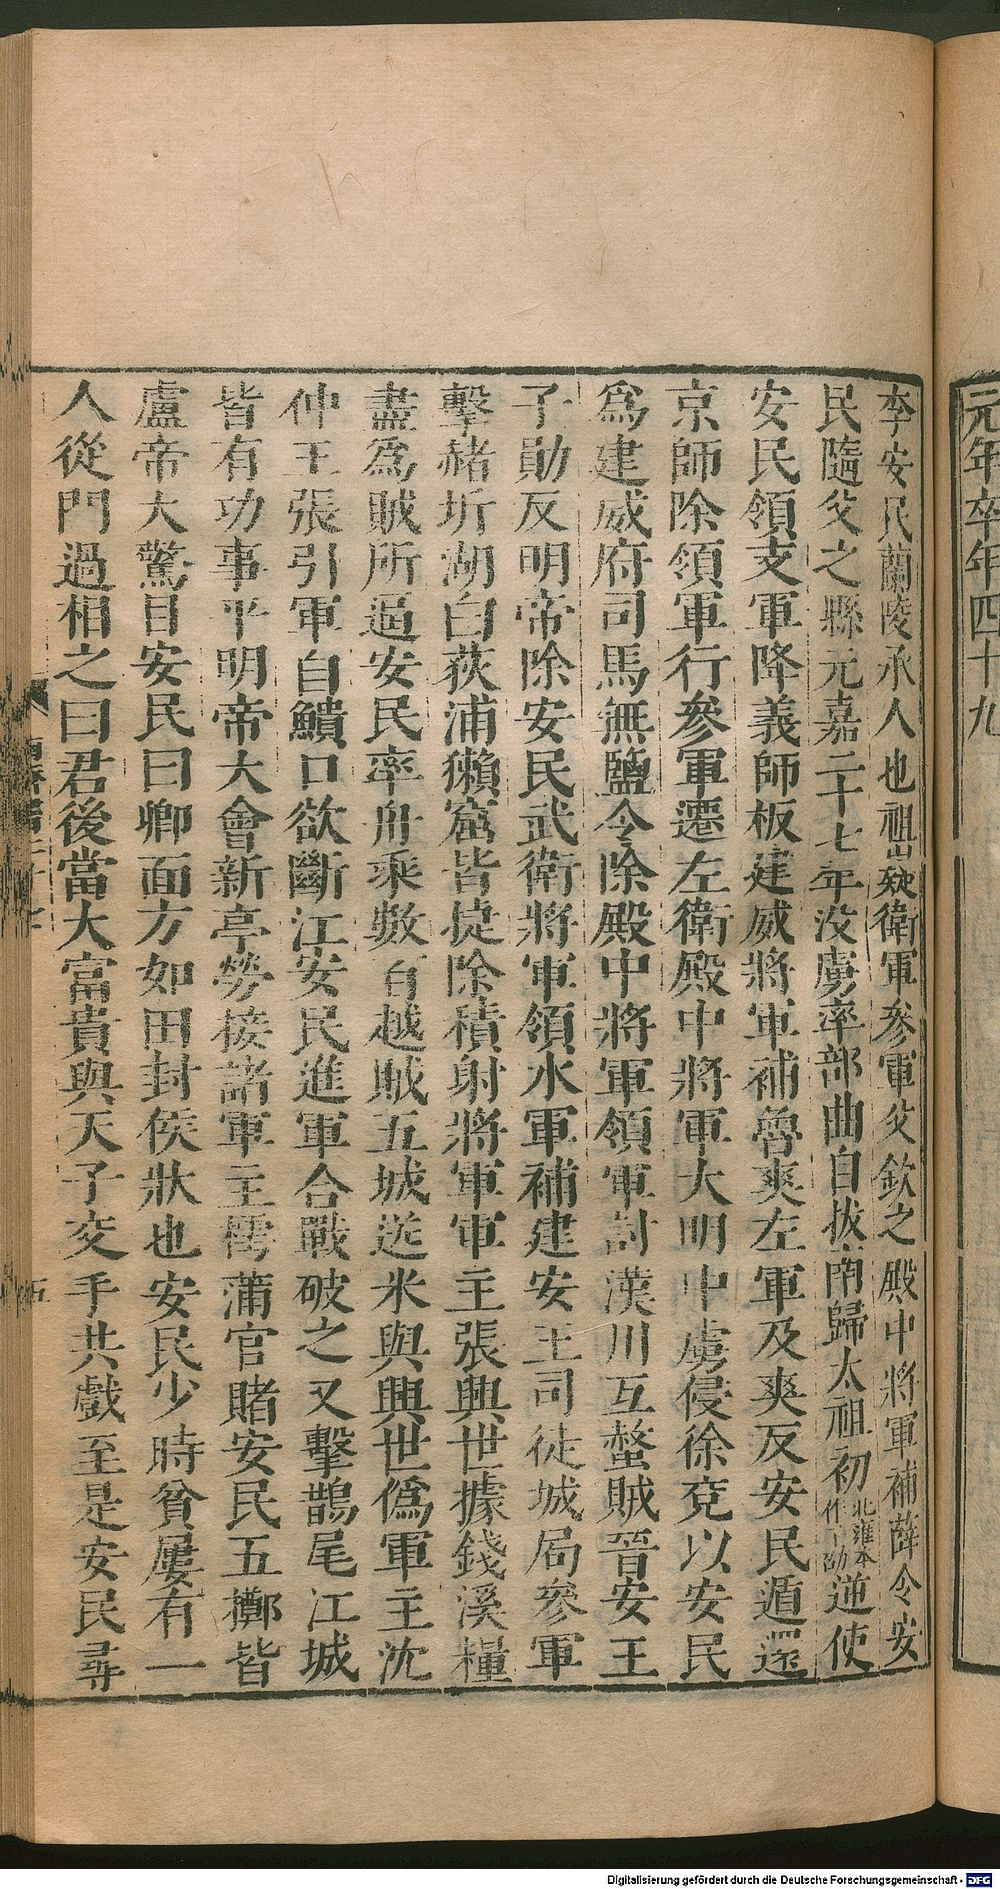 元年卒年四十九
李安民蘭陵承人也祖嶷衛軍參軍父欽之殿中將軍補薛令安
民隨父之縣元嘉二十七年没虜率部曲自拔南歸太祖初北雍本作一劭逆使
安民領支軍降義師板建威將軍補魯爽左軍及爽反安民遁還
京師除領軍行參軍遷左衛殿中將軍大明中虜侵徐兗以安民
爲建威府司馬無鹽令除殿中將軍領軍討漢川互螯賊晉安王
子勛反明帝除安民武衛將軍領水軍補建安王司徒城局參軍
擊赭圻湖白荻浦獺窟皆捷除積射將軍軍主張興世據錢溪糧
盡爲賊所逼安民率舟乘數百越賊五城送米與興世僞軍主沈
仲王張引軍自鱝口欲斷江安民進軍合戰破之又擊鵲尾江城
皆有功事平明帝大會新亭勞接諸軍主樗蒲官賭安民五擲皆
盧帝大驚目安民曰卿面方如田封侯狀也安民少時貧屢有一
人從門過相之曰君後當大富貴與天子交手共戲至是安民尋
五
Digitalisierung gefördert durch die Deutsche Forschungsgemeinschaft - DFG